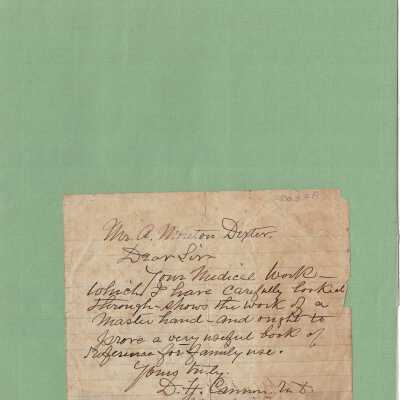 Mr. A. Mouton Dexter.
Dear Sir
Your Medical Work —
which I have carefully looked
through — shows the work of a
Master hand — and ought to
prove a very useful book of
reference for family use.
Yours truly.
D. H. Cannon M.D.